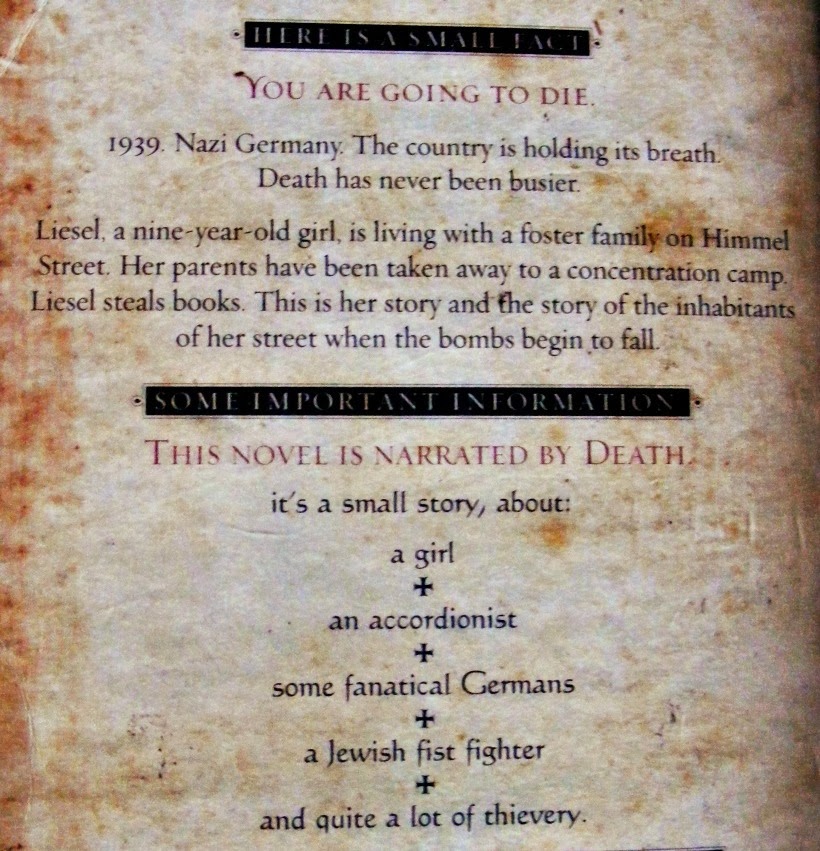 HERE IS A SMALL FACT
YOU ARE GOING TO DIE.
1939. Nazi Germany. The country is holding its breath.
Death has never been busier.
Liesel, a nine-year-old girl, is living with a foster family on Himmel
Street. Her parents have been taken away to a concentration camp.
Liesel steals books. This is her story and the story of the inhabitants
of her street when the bombs begin to fall.
SOME IMPORTANT INFORMATION
THIS NOVEL IS NARRATED BY DEATH.
it's a small story, about:
a girl
an accordionist
some fanatical Germans
a Jewish fist fighter
and quite a lot of thievery.